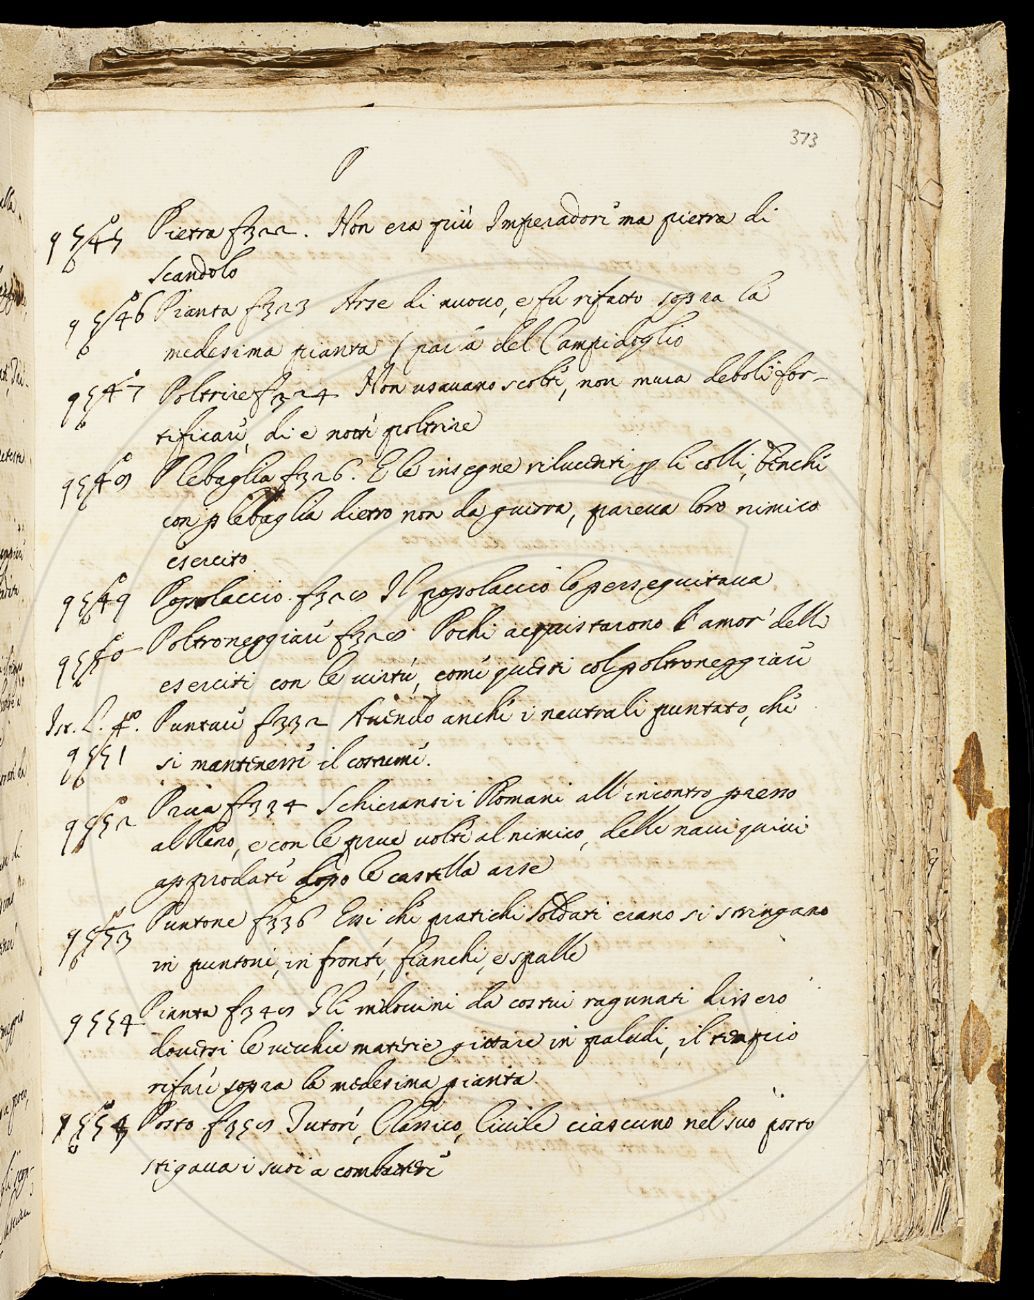 373
P
9545 Pietra f322. Non era più Imperadore ma pietra di
scandolo
9546 Pianta f323 Arse di nuovo, e fu rifatto sopra la
medesima pianta (parla del Campidoglio
9547 Poltrire f324 Non usavano scolte, non mura deboli for-
tificare, di e notte poltrire
9548 Plebaglia f326. E le insegne rilucenti p li colli, benche
con plebaglia dietro non da guerra, pareva loro nimico
esercito
9549 Popolaccio f328 Il popolaccio lo perseguitava
9550 Poltroneggiare f328 Pochi acquistarono l'amor delli
eserciti con le virtù, come questi col poltroneggiare
Ist. L. 4°. Puntare f332 Avendo anche i neutrali puntato, che
9551 si mantenesse il costume.
9552 Prua f334 Schieransi i Romani all'incontro presso
al Reno, e con le prue volte al nimico, delle navi quivi
approdate dopo le castella arse
9553 Puntone f336 Essi che pratichi soldati erano si stringano
in puntoni, in fronte, fianchi, e spalle
9554 Pianta f348 Gli indovini da costui ragunati dissero
doversi le vecchie materie gittare in paludi, il tempio
rifare sopra la medesima pianta.
Posto f358 Tutori, Classico, Civile ciascuno nel suo posto
stigava i suoi a combattere